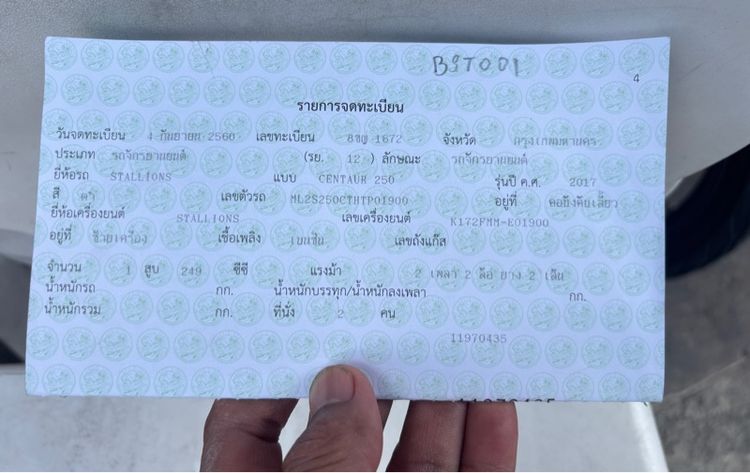 BST001
4
รายการจดทะเบียน
วันจดทะเบียน 4 กันยายน 2560 เลขทะเบียน 8ขญ 1672 จังหวัด กรุงเทพมหานคร
ประเภท รถจักรยานยนต์ (รย. 12 ) ลักษณะ รถจักรยานยนต์
ยี่ห้อรถ STALLIONS แบบ CENTAUR 250 รุ่นปี ค.ศ. 2017
สี ดำ เลขตัวรถ ML2S250CTHTP01900 อยู่ที่ คอบังคับเลี้ยว
ยี่ห้อเครื่องยนต์ STALLIONS เลขเครื่องยนต์ K172FMM-E01900
อยู่ที่ ซ้ายเครื่อง เชื้อเพลิง เบนซิน เลขถังแก๊ส
จำนวน 1 สูบ 249 ซีซี แรงม้า 2 เพลา 2 ล้อ ยาง 2 เส้น
น้ำหนักรถ กก. น้ำหนักบรรทุก/น้ำหนักลงเพลา กก.
น้ำหนักรวม กก. ที่นั่ง 2 คน
11970435